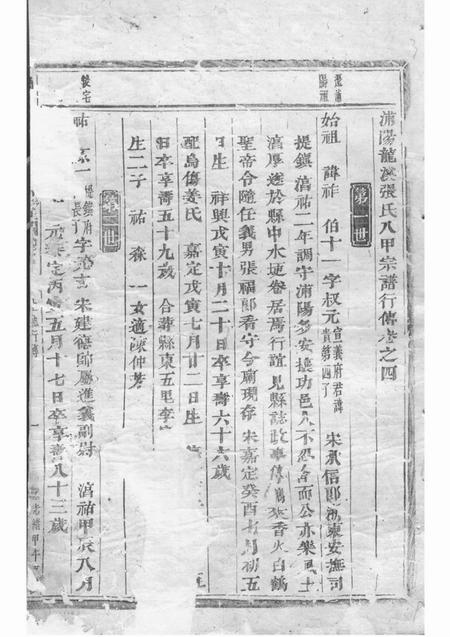 浦陽龍溪張氏八甲宗譜行傳卷之四
第一世
始祖 諱祚 伯十一字叔元 宣義府君諱
貴第四子 宋承信郎浙東安撫司
提鎮 淳祐二年調守浦陽多安攘功邑人不忍舍而公亦樂風土
淳厚遂於縣中水埂卷居焉行誼見縣誌政事傳 香火白鶴
聖帝令隨任義男張福郎看守令廟現存 宋嘉定癸酉七月初五
日生 祥興戊寅十月二十日卒享壽六十六歲
配烏傷姜氏 嘉定戊寅七月廿二日生
日卒享壽五十九歲 合葬縣東五里李
生二子 祐 森 一女適陳仲芳
第二世
祐 提鎮府
長子 字 宋建德郎屬進義副尉 淳祐甲辰八月
五月十七日卒享壽八十三歲
光緒甲午